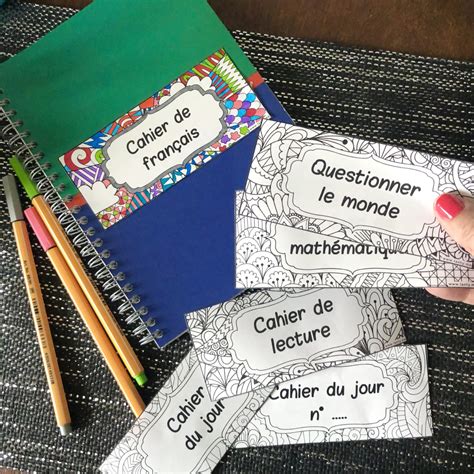 Cahier de
français
Questionner
le monde
mathématiqu
Cahier de
lecture
Cahier du jour
n° .....
Cahier
du jour